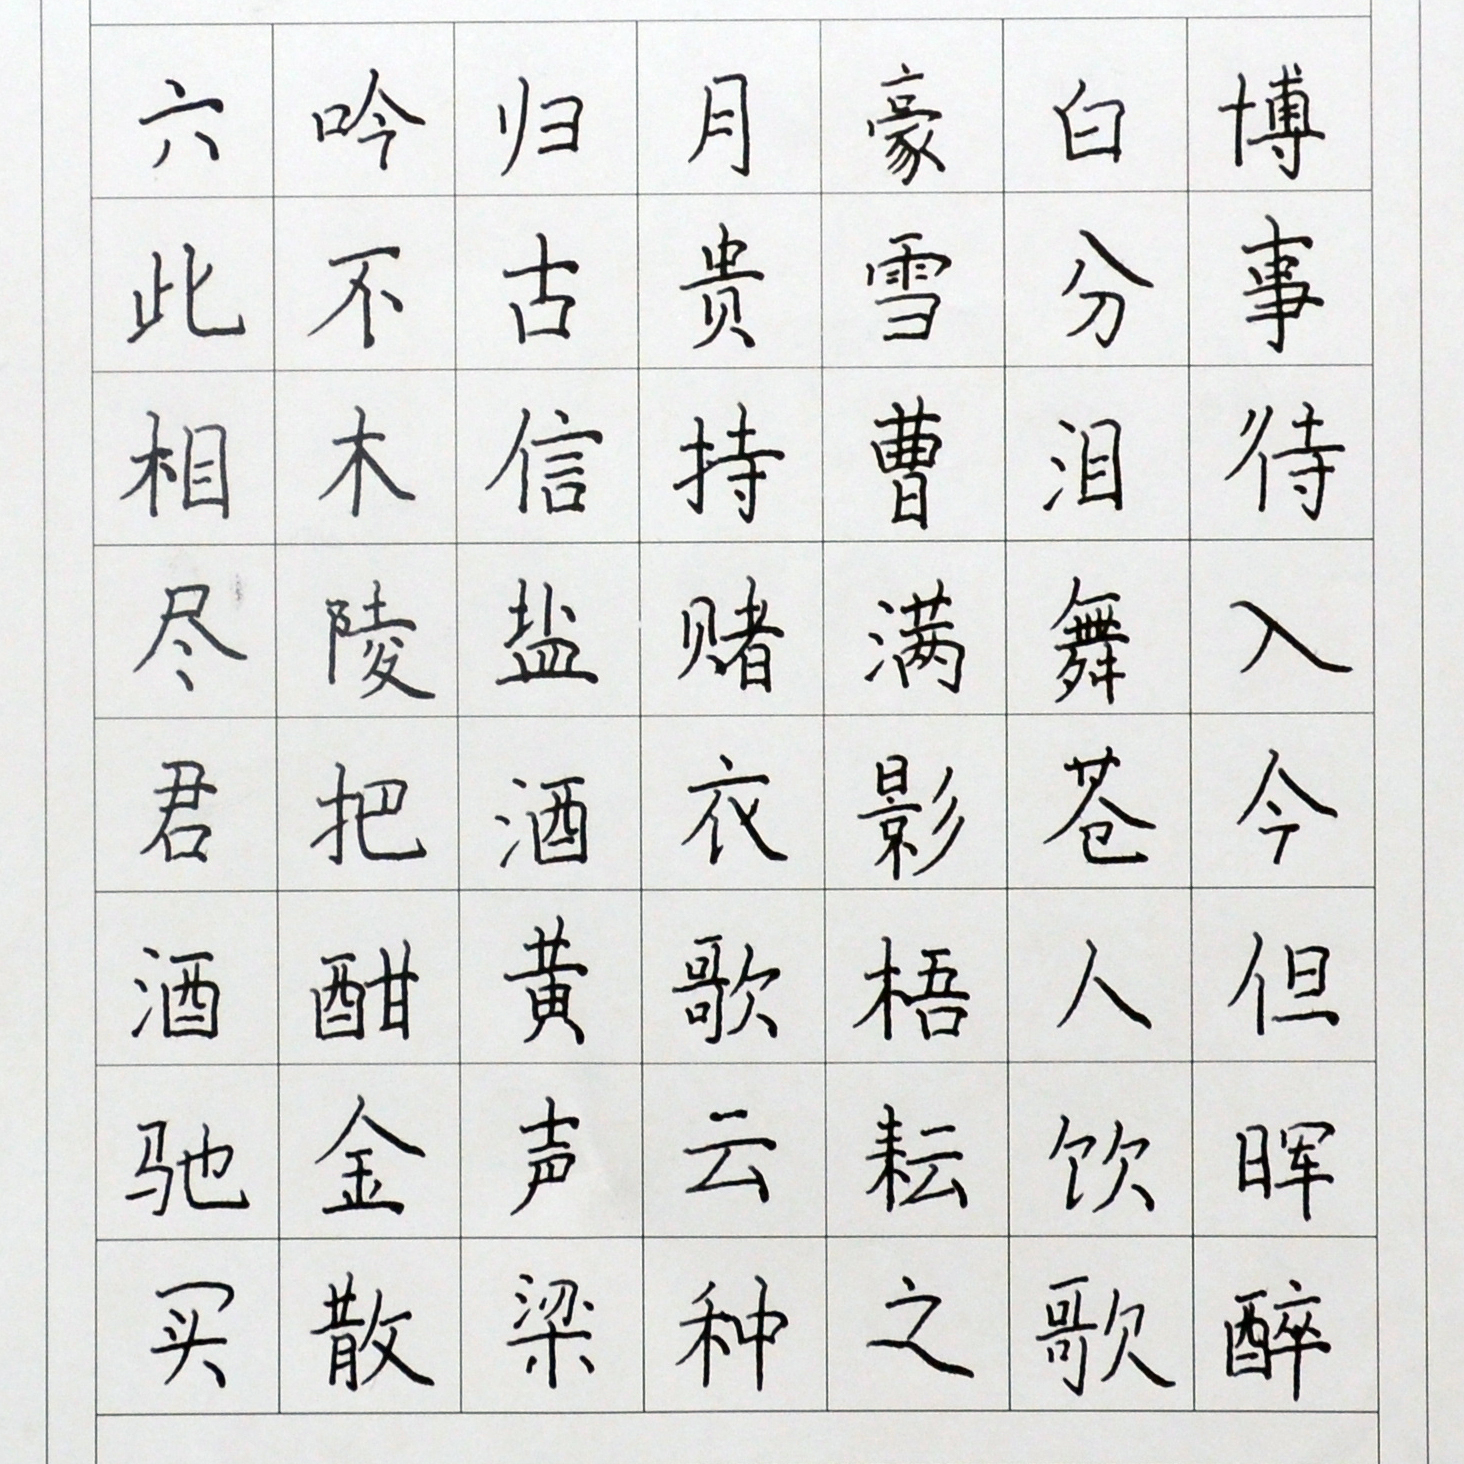 博事待入今但晖醉
白分泪舞苍人饮歌
豪雪曹满影梧耘之
月贵持赌衣歌云种
归古信盐酒黄声梁
吟不木陵把酣金散
六此相尽君酒驰买